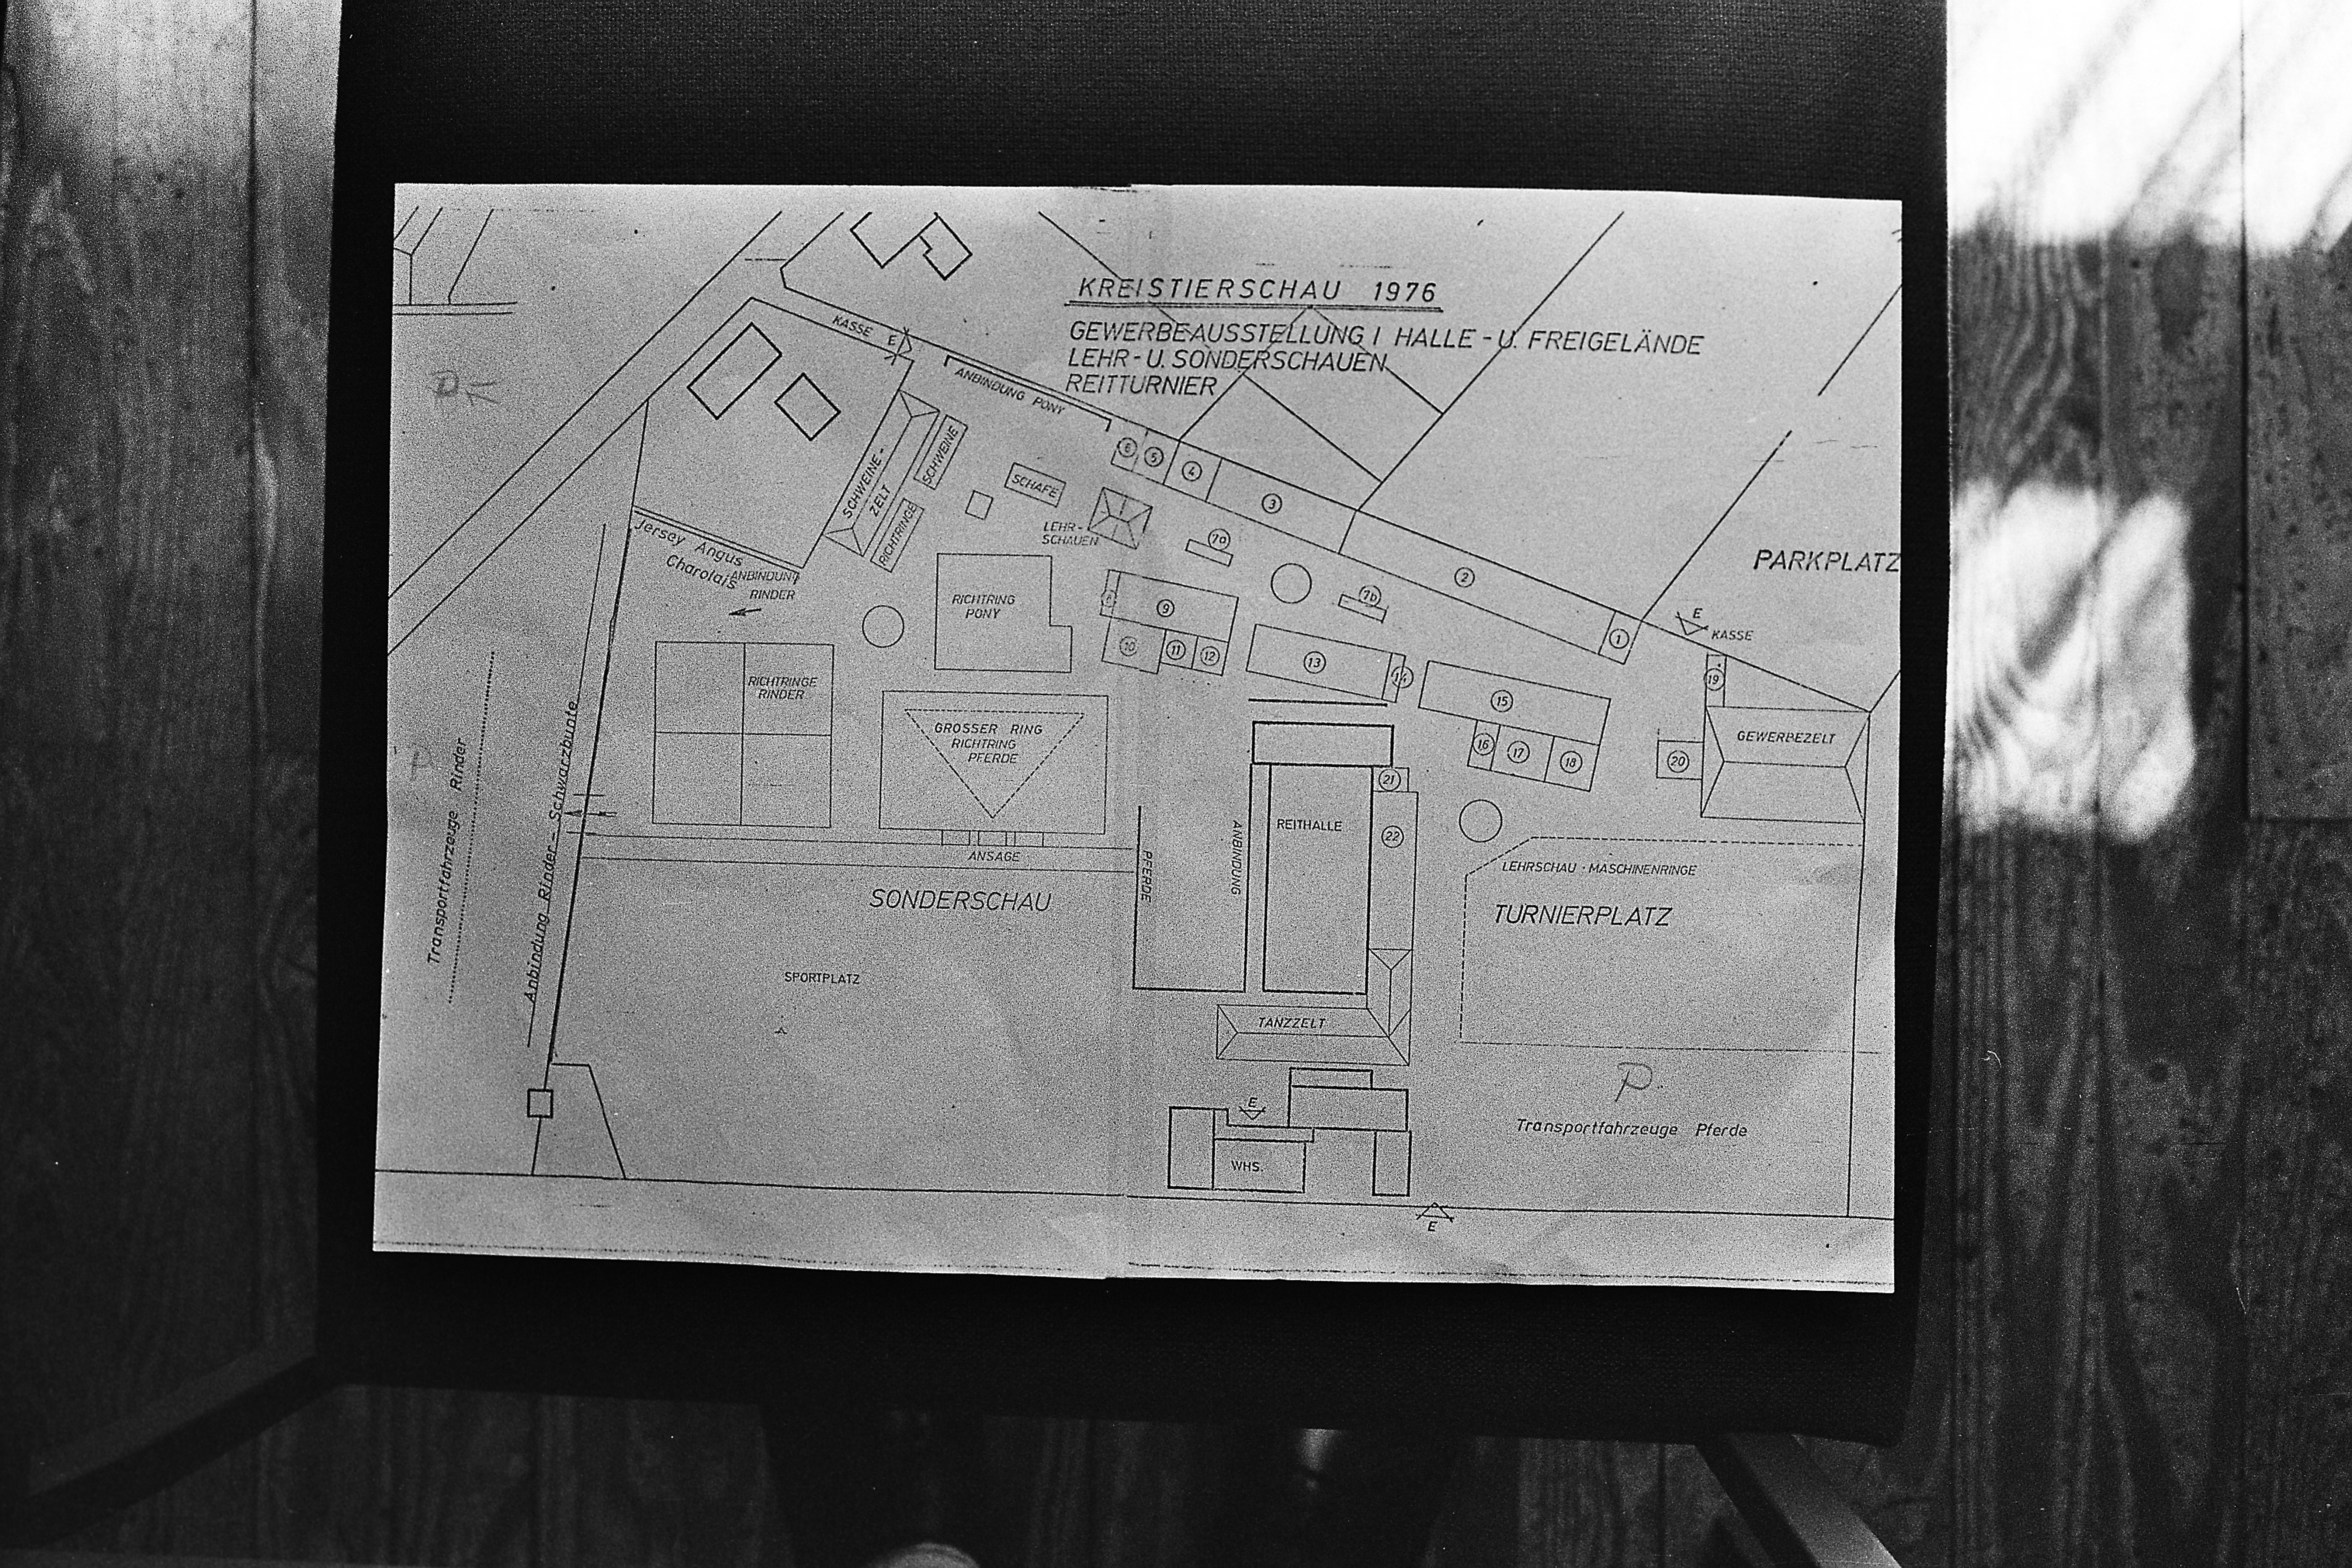 KREISTIERSCHAU 1976
GEWERBEAUSSTELLUNG I HALLE - U. FREIGELÄNDE
LEHR - U. SONDERSCHAUEN
REITTURNIER
KASSE
E
ANBINDUNG PONY
P
SCHWEINE-
ZELT
SCHWEINE
RICHTRINGE
SCHAFE
LEHR-
SCHAUEN
6
5
4
3
2
1
7a
7b
PARKPLATZ
E
KASSE
Jersey Angus
Charolais
ANBINDUNG
RINDER
RICHTRING
PONY
9
10
11
12
13
14
15
16
17
18
19
20
GEWERBEZELT
RICHTRINGE
RINDER
GROSSER RING
RICHTRING
PFERDE
ANSAGE
P
Transportfahrzeuge Rinder
Anbindung Rinder - Schwarzbunte
SONDERSCHAU
SPORTPLATZ
PFERDE
ANBINDUNG
REITHALLE
21
22
LEHRSCHAU · MASCHINENRINGE
TURNIERPLATZ
TANZZELT
P
Transportfahrzeuge Pferde
E
WHS.
E